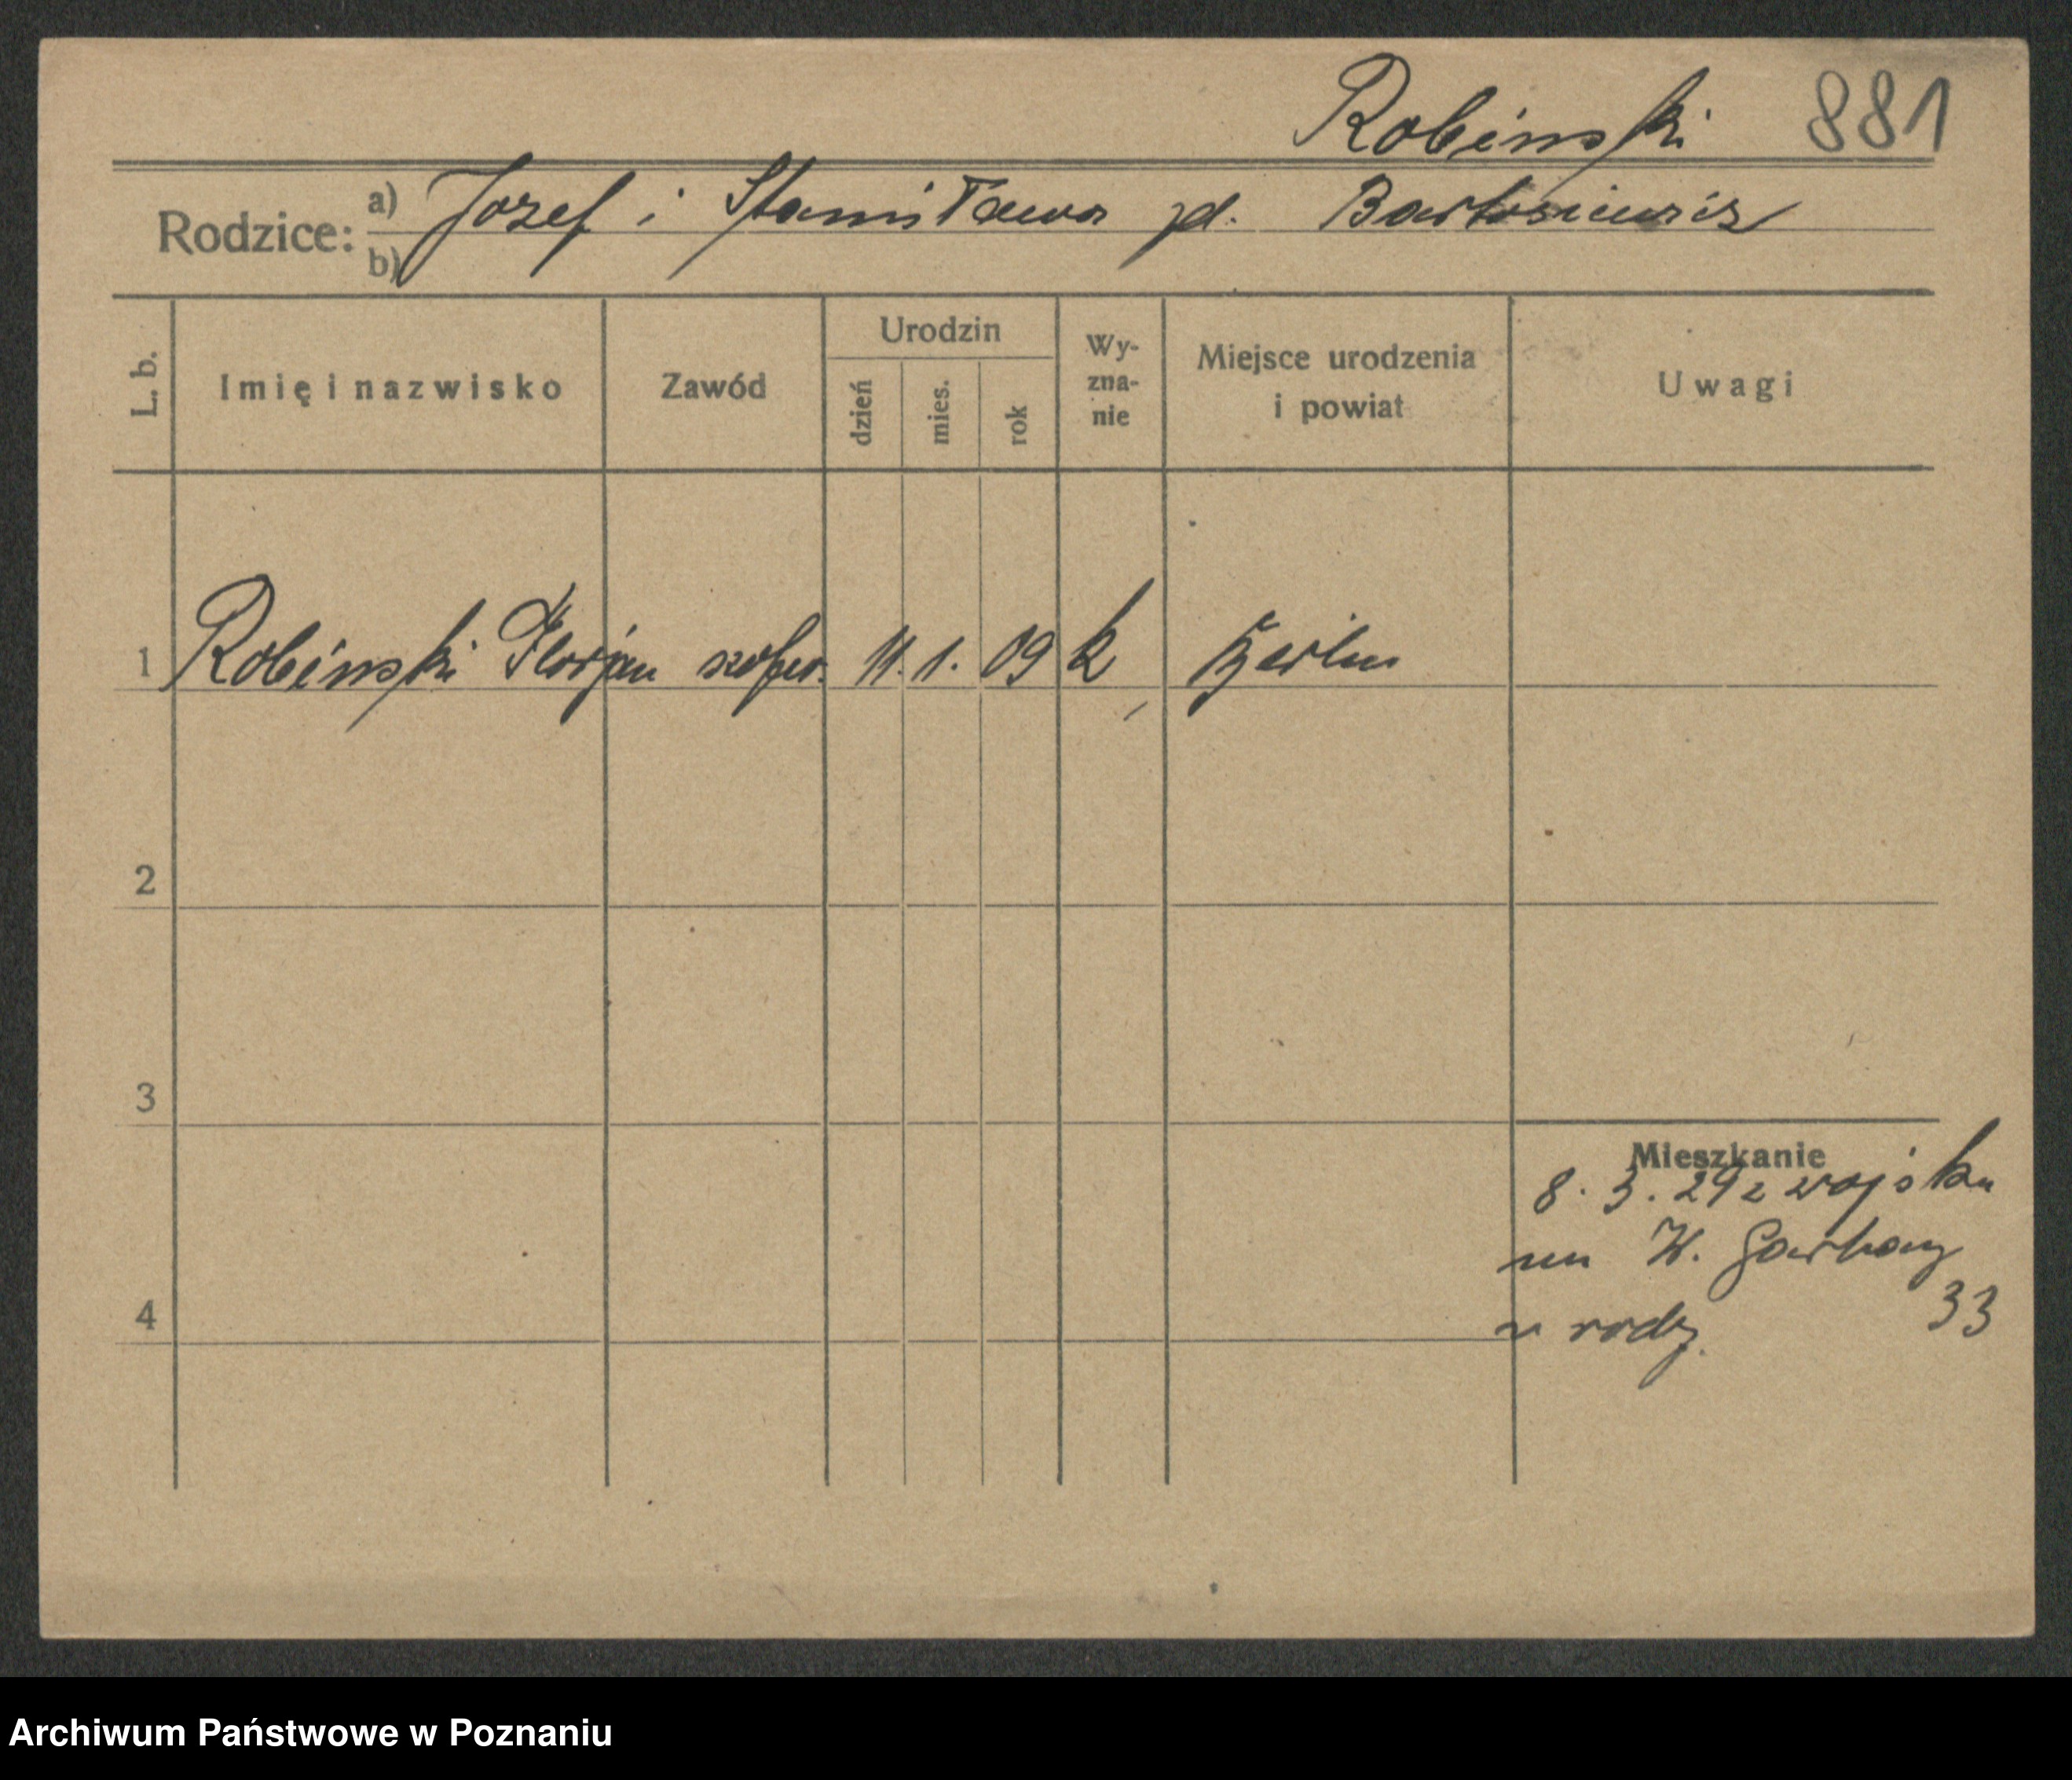 Robinski 881
Rodzice: a) Jozef i Stanisława zd. Bartosiewicz
b)
L. b. Imię i nazwisko Zawód Urodzin dzień mies. rok Wy-zna-nie Miejsce urodzenia i powiat Uwagi
1 Robinski Florjan szofer. 11. 1. 09 k Berlin
2
3
Mieszkanie
8. 3. 29 z wojska
na W. Garbary
4 33
u rodz.
Archiwum Państwowe w Poznaniu